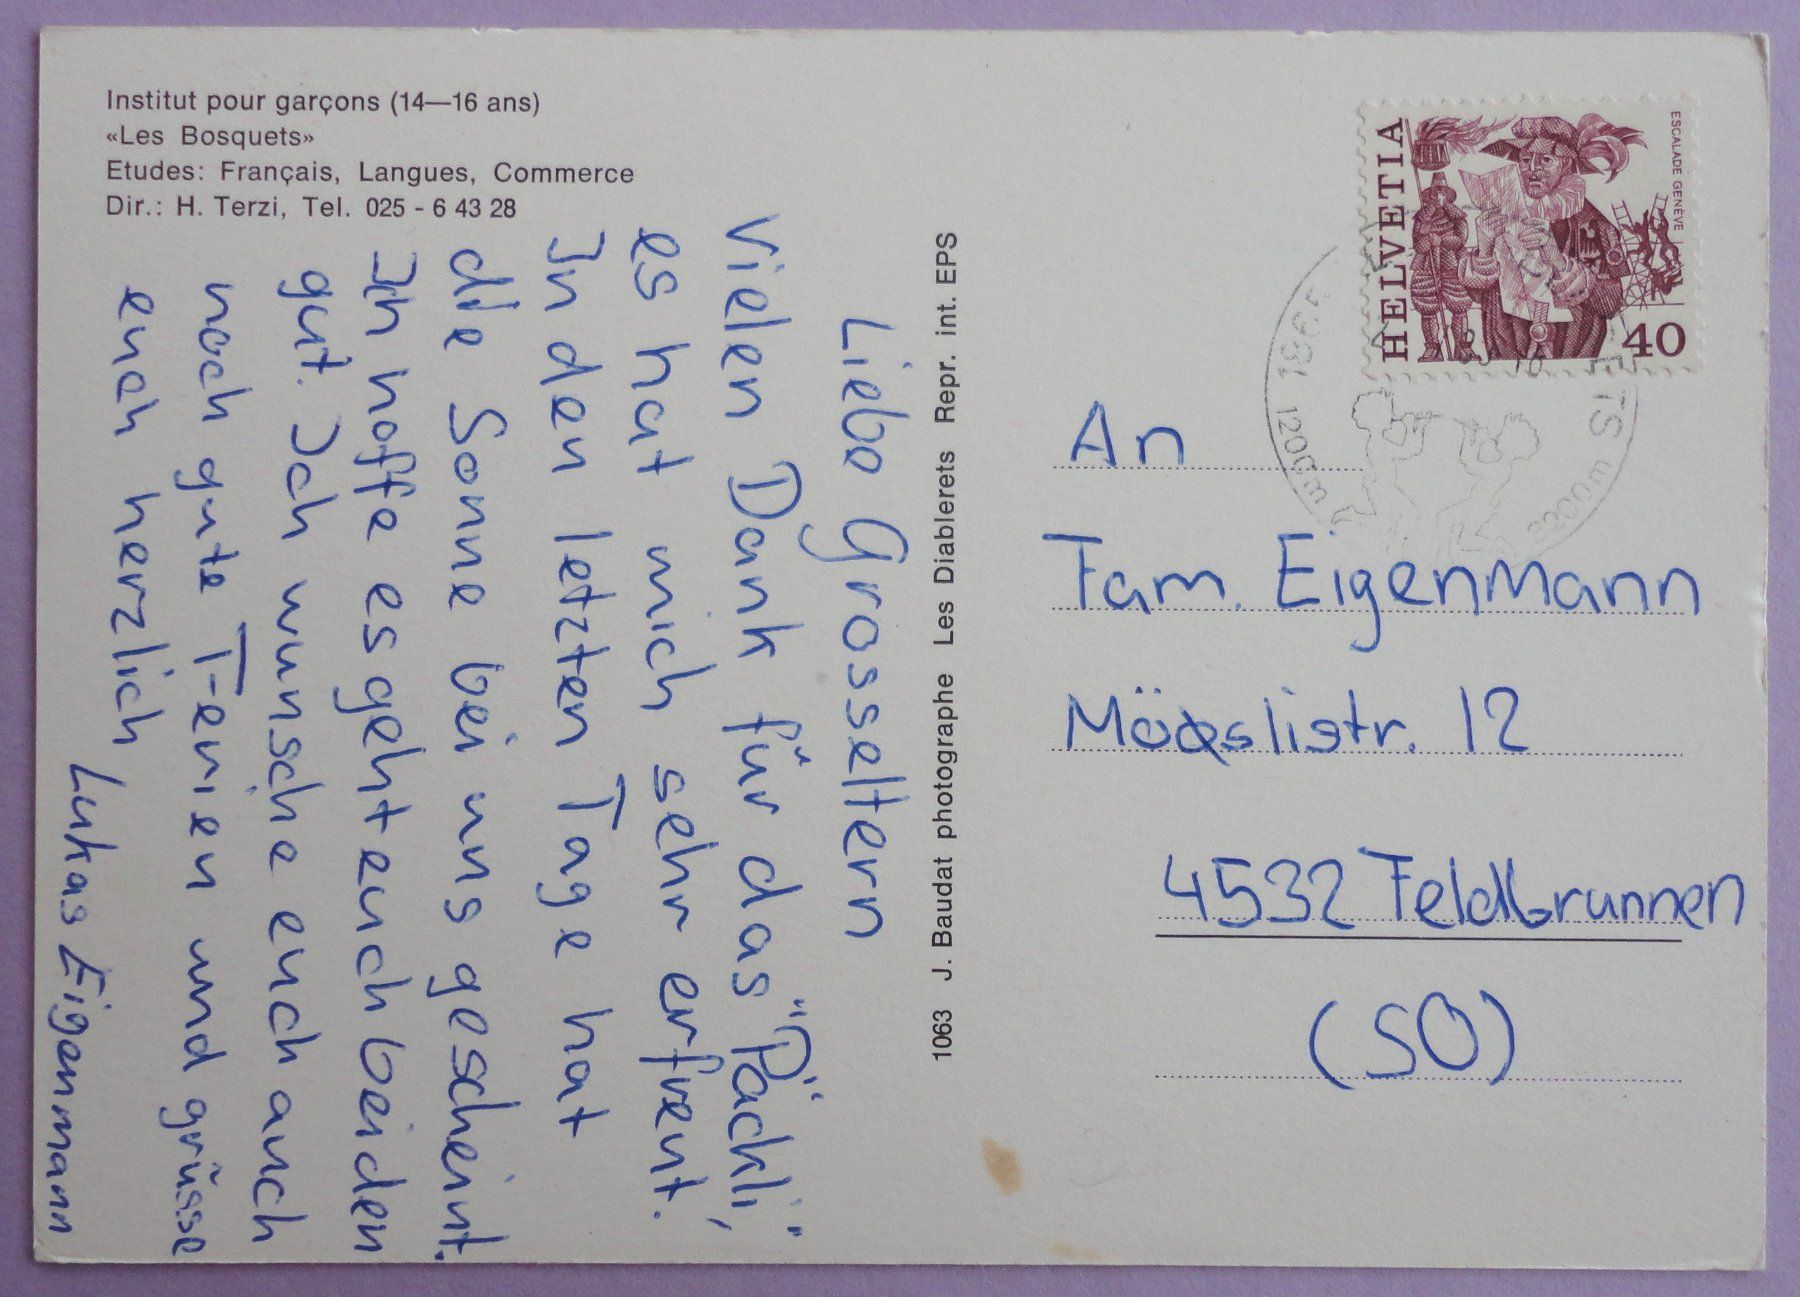 Institut pour garçons (14—16 ans)
«Les Bosquets»
Etudes: Français, Langues, Commerce
Dir.: H. Terzi, Tel. 025 - 6 43 28
Liebe Grosseltern
Vielen Dank für das "Päckli",
es hat mich sehr erfreut.
In den letzten Tage hat
die Sonne bei uns gescheint.
Ich hoffe es geht euch beiden
gut. Ich wünsche euch auch
noch gute Ferien und grüsse
euch herzlich
Lukas Eigenmann
1063 J. Baudat photographe Les Diablerets Repr. int. EPS
HELVETIA
ESCALADE GENÈVE
40
1865
1200m
3200m
An
Fam. Eigenmann
Möslistr. 12
4532 Feldbrunnen
(SO)